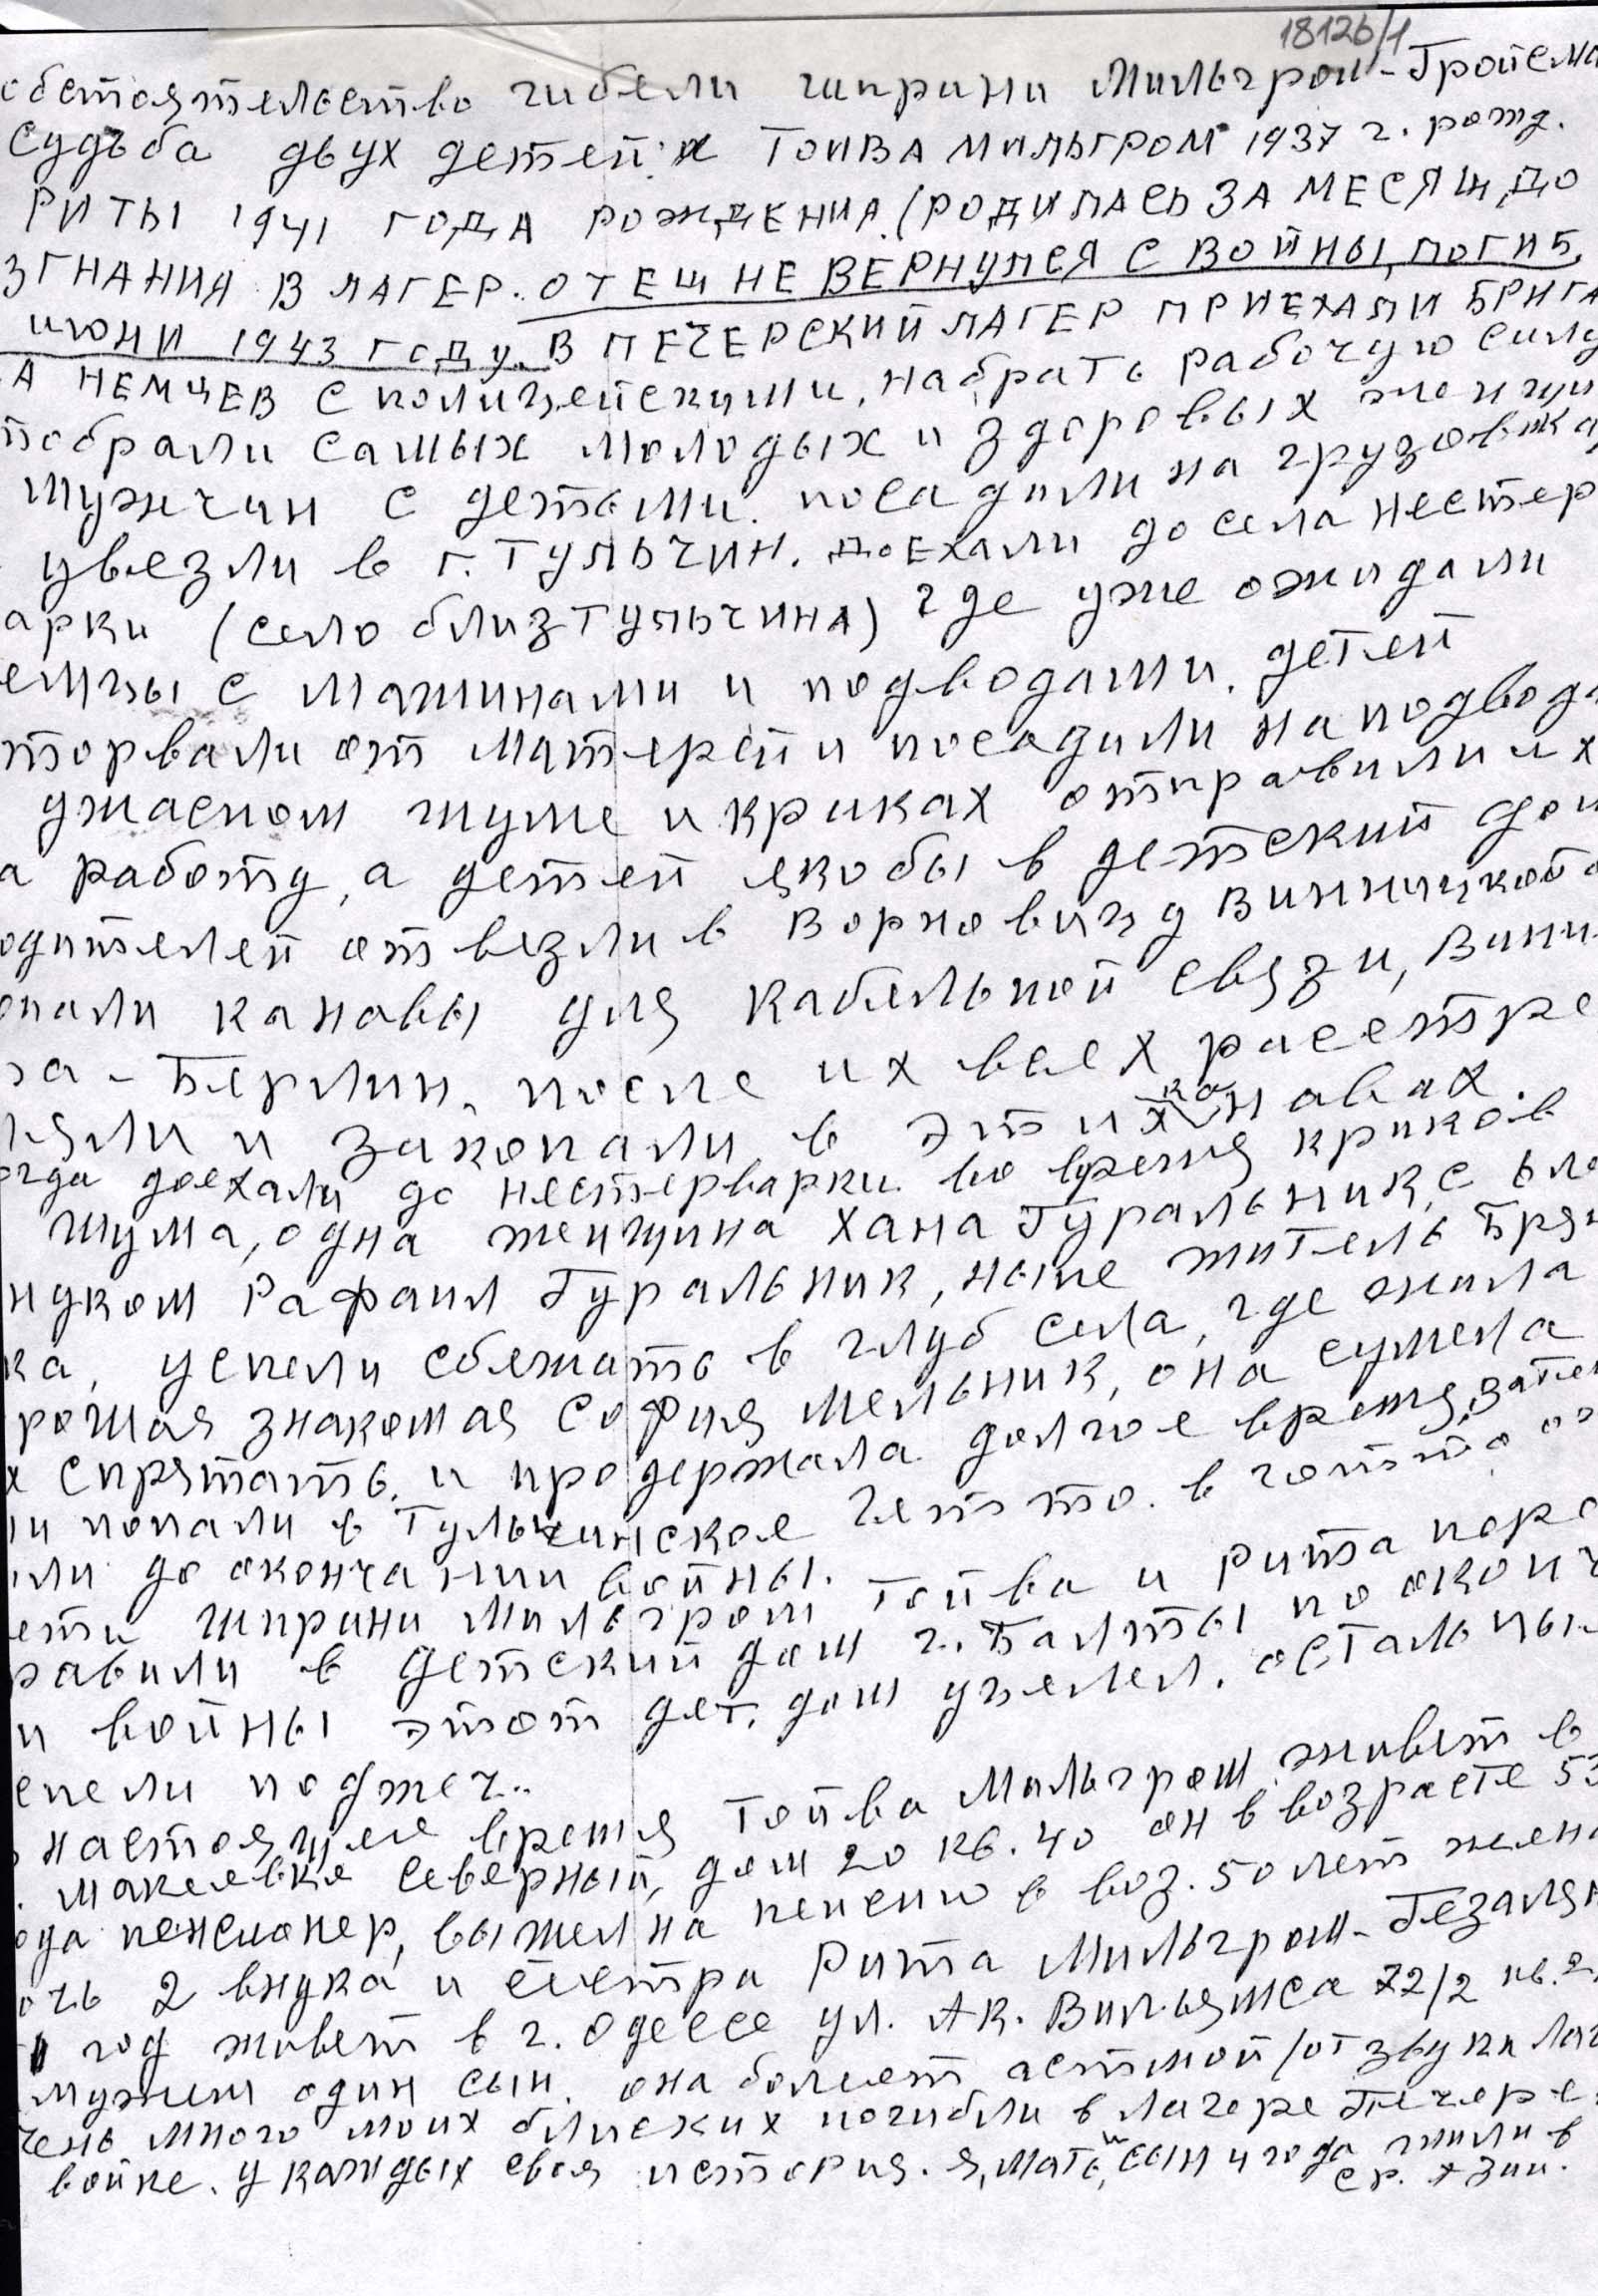 18126/1
обстоятельство гибели ширини Мильгром-Тройсма
Судьба двух детей: и ТОЙВА МИЛЬГРОМ 1937 г. рожд.
РИТЫ 1941 ГОДА РОЖДЕНИЯ. (РОДИЛАСЬ ЗА МЕСЯЦ ДО
ЗГНАНИЯ В ЛАГЕР. ОТЕЦ НЕ ВЕРНУЛСЯ С ВОЙНЫ, ПОГИБ,
июни 1943 году. В ПЕЧЕРСКИЙ ЛАГЕР ПРИЕХАЛИ БРИГА
А НЕМЦЕВ С полицейскими, набрать рабочую силу
тобрали самых молодых и здоровых женщи
мужчин с детьми. посадили на грузовика
увезли в г. ТУЛЬЧИН. доехали до села нестер
арки (село близ ТУЛЬЧИНА) где уже ожидали
емцы с машинами и подводами. детей
торвали от матерей и посадили на подвода
ужасном шуме и криках отправили их
а работу, а детей якобы в детский дом
одителей отвезли в Ворновицу Винницкой о
опали канавы для кабельной связи, Винни
ца - Берлин. после их всех расстре
ляли и закопали в этих канавах.
огда доехали до нестерварки во время криков
шума, одна женщина Хана Гуральник, с 6 ле
нуком Рафаил Гуральник, ныне житель Брян
ка, успели сбежать в глуб села, где жила
рошая знакомая София Мельник, она сумела
х спрятать. и продержала долгое время, затем
ни попали в Тульчинское Гетто. в готто
или до окончании войны. Тойва и Рита
ети ширини Мильгром
равили в детский дом г. Балты по оконч
и войны этот дет. дом уцелел. остальны
спели поджеч..
настоящее время Тойва Мильгром живет в
. макеевке Северный, дом 20 кв. 40 он в возрасте 53
ода пенсионер, вышел на пенсию в воз. 50 лет жена
очь 2 внука и сестра Рита Мильгром-
год живет в г. Одессе ул. Ак. Вильямса 72/2 кв. 2
мужем один сын. она болеет астмой /от звуки лаг
чень много моих близких погибли в лагере Печере
войне. у каждых своя история. я, мать, и сын 4 года жили в
ср. Азии.